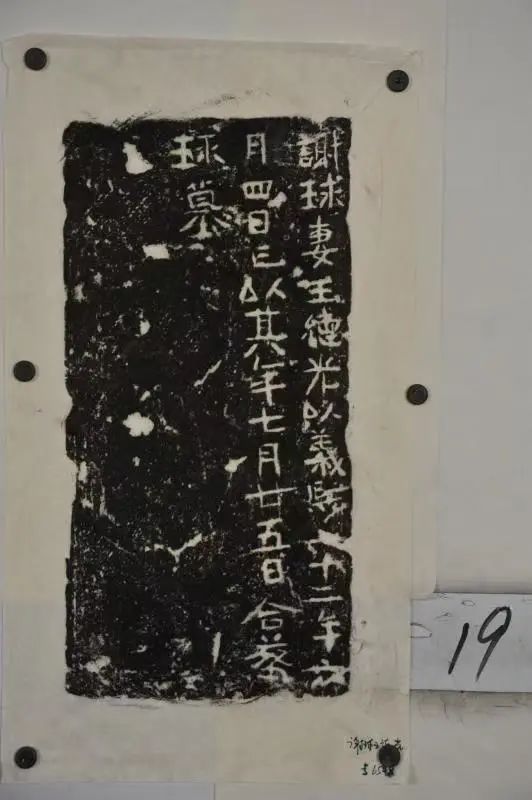 謝球妻王德光以義熙十二年六
月四日亡以其年七月廿五日合葬
球墓
19